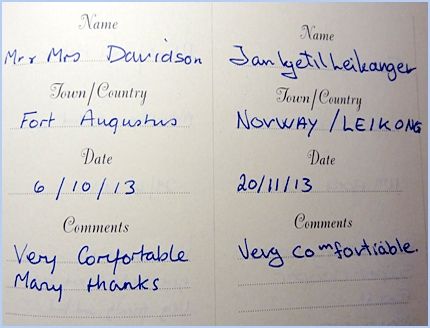 Name
Mr & Mrs Davidson
Town/Country
Fort Augustus
Date
6/10/13
Comments
Very Comfortable
Many thanks
Name
Jan Kjetil Leikanger
Town/Country
NORWAY / LEIKONG
Date
20/11/13
Comments
Very comfortiable.